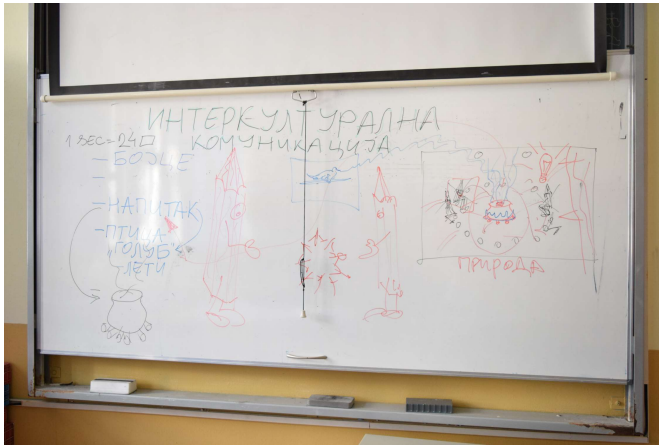 ИНТЕРКУЛТУРАЛНА
КОМУНИКАЦИЈА
1 SEC = 24□
– БОЈИЦЕ
–
– НАПИТАК
– ПТИЦА
„ГОЛУБ“
ЛЕТИ
ПРИРОДА